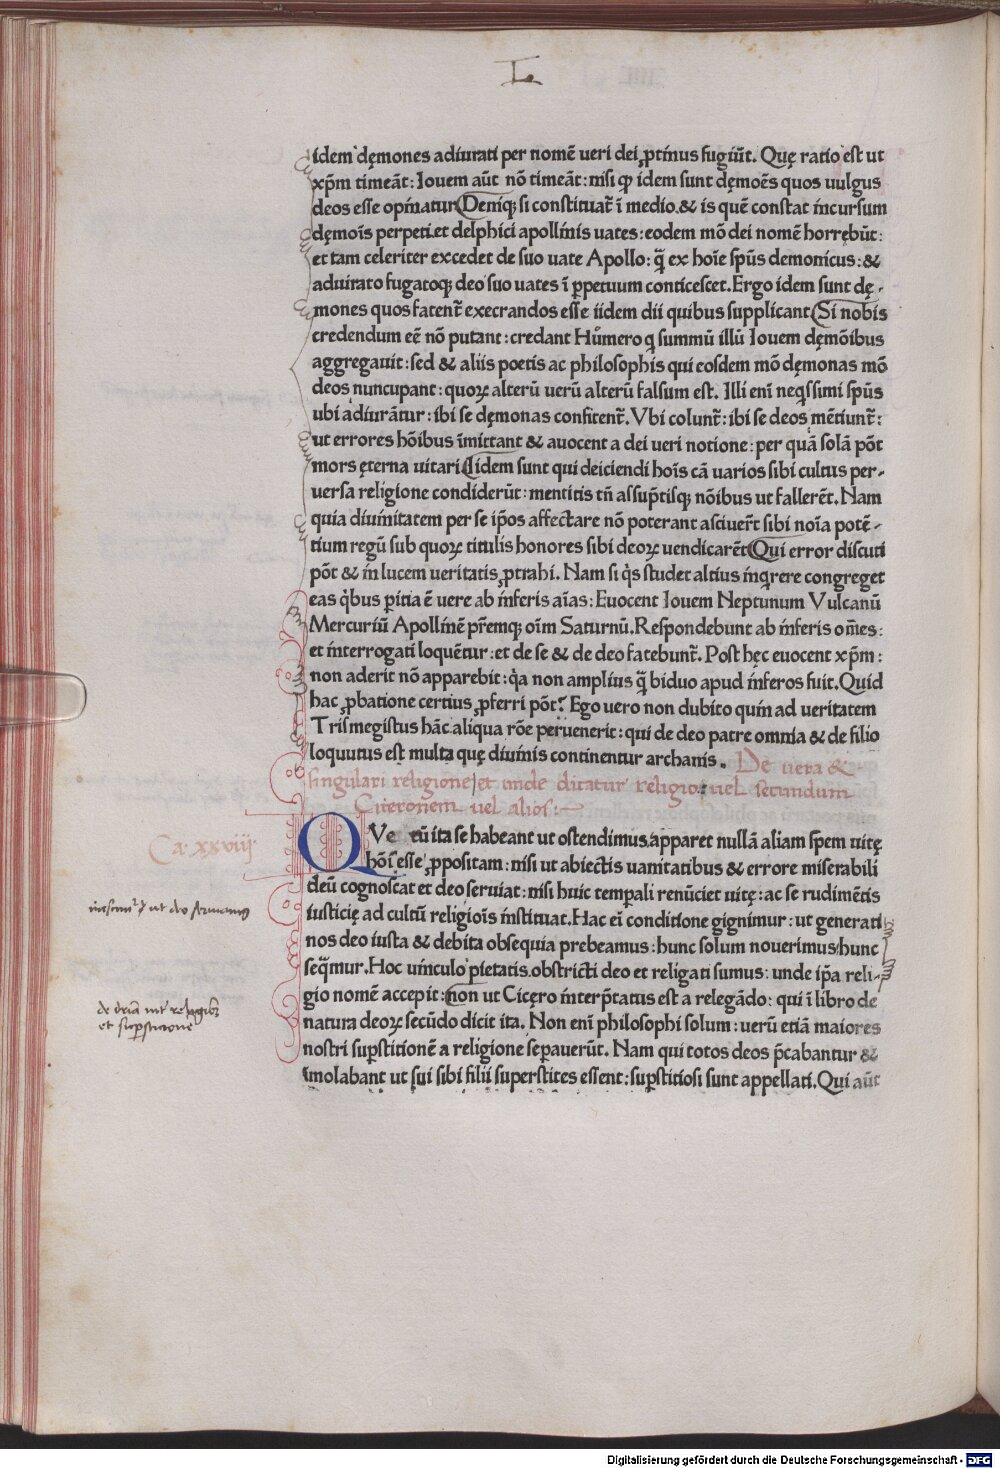 L.
idem dęmones adiurati per nomē ueri dei ꝓtinus fugiūt. Quę ratio est ut
xp̄m timeāt: Iouem aūt nō timeāt: nisi ꝙ idem sunt dęmoēs quos uulgus
deos esse opinatur Deniqꝫ si constituat̄ ī medio & is quē constat incursum
dęmoīs perpeti.et delphici apollinis uates: eodem mō dei nomē horrębūt:
et tam celeriter excedet de suo uate Apollo: q̄ ex hoīe sp̄us demonicus: &
adiurato fugatoqꝫ deo suo uates ī ꝑpetuum conticescet. Ergo idem sunt dę-
mones quos fatent̄ execrandos esse iidem dii quibus supplicant Si nobis
credendum eē nō putant: credant Humero q summū illū Iouem dęmōibus
aggregauit: sed & aliis poetis ac philosophis qui eosdem mō dęmonas mō
deos nuncupant: quoꝝ alterū uerū alterū falsum est. Illi enī neq̄ssimi sp̄us
ubi adiurātur: ibi se dęmonas confitent̄. Vbi colunt̄: ibi se deos mētiunt̄:
ut errores hōibus īmittant & auocent a dei ueri notione: per quā solā pōt
mors ęterna uitari Iidem sunt qui deiciendi hoīs cā uarios sibi cultus per-
uersa religione condiderūt: mentitis tn̄ assup̄tisqꝫ nōibus ut fallerēt. Nam
quia diuinitatem per se ip̄os affectare nō poterant asciuer̄t sibi noīa potē-
tium regū sub quoꝝ titulis honores sibi deoꝝ uendicarēt Qui error discuti
pōt & in lucem ueritatis ꝓtrahi. Nam si q̇s studet altius inq̄rere congreget
eas q̇bus ꝑitia ē uere ab inferis aīas: Euocent Iouem Neptunum Vulcanū
Mercuriū Apollinē pr̄emqꝫ oīm Saturnū. Respondebunt ab inferis om̄es:
et interrogati loquētur: et de se & de deo fatebunt̄. Post hęc euocent xp̄m:
non aderit nō apparebit: q̇a non amplius q̄ biduo apud inferos fuit. Quid
hac ꝓbatione certius ꝓferri pōt? Ego uero non dubito quin ad ueritatem
Trismegistus hāc aliqua rōe peruenerit: qui de deo patre omnia & de filio
loquutus est multa quę diuinis continentur archanis. De uera &
singulari religione et unde dicatur religio: uel secundum
Ciceronem uel alios:
Ca. xxviij.
QVe cū ita se habeant ut ostendimus, apparet nullā aliam spem uitę
hōi esse ꝓpositam: nisi ut abiectis uanitatibus & errore miserabili
deū cognoscat et deo seruiat: nisi huic tempali renūciet uitę: ac se rudimētis
iusticię ad cultū religioīs instituat. Hac eī conditione gignimur: ut generati
nos deo iusta & debita obsequia prebeamus: hunc solum nouerimus: hunc
seq̄mur. Hoc uinculo pietatis obstricti deo et religati sumus: unde ip̄a reli-
gio nomē accepit: non ut Cicęro interp̄tatus est a relegādo: qui ī libro de
natura deoꝝ secūdo dicit ita. Non enī philosophi solum: uerū etiā maiores
nostri sup̄stitionē a religione sepauerūt. Nam qui totos deos p̄cabantur &
imolabant ut sui sibi filii superstites essent: sup̄stitiosi sunt appellati. Qui aūt
nascimur ut deo seruiamus
de dr̄ia int̄ religionē
et sup̄sticionē
Digitalisierung gefördert durch die Deutsche Forschungsgemeinschaft - DFG